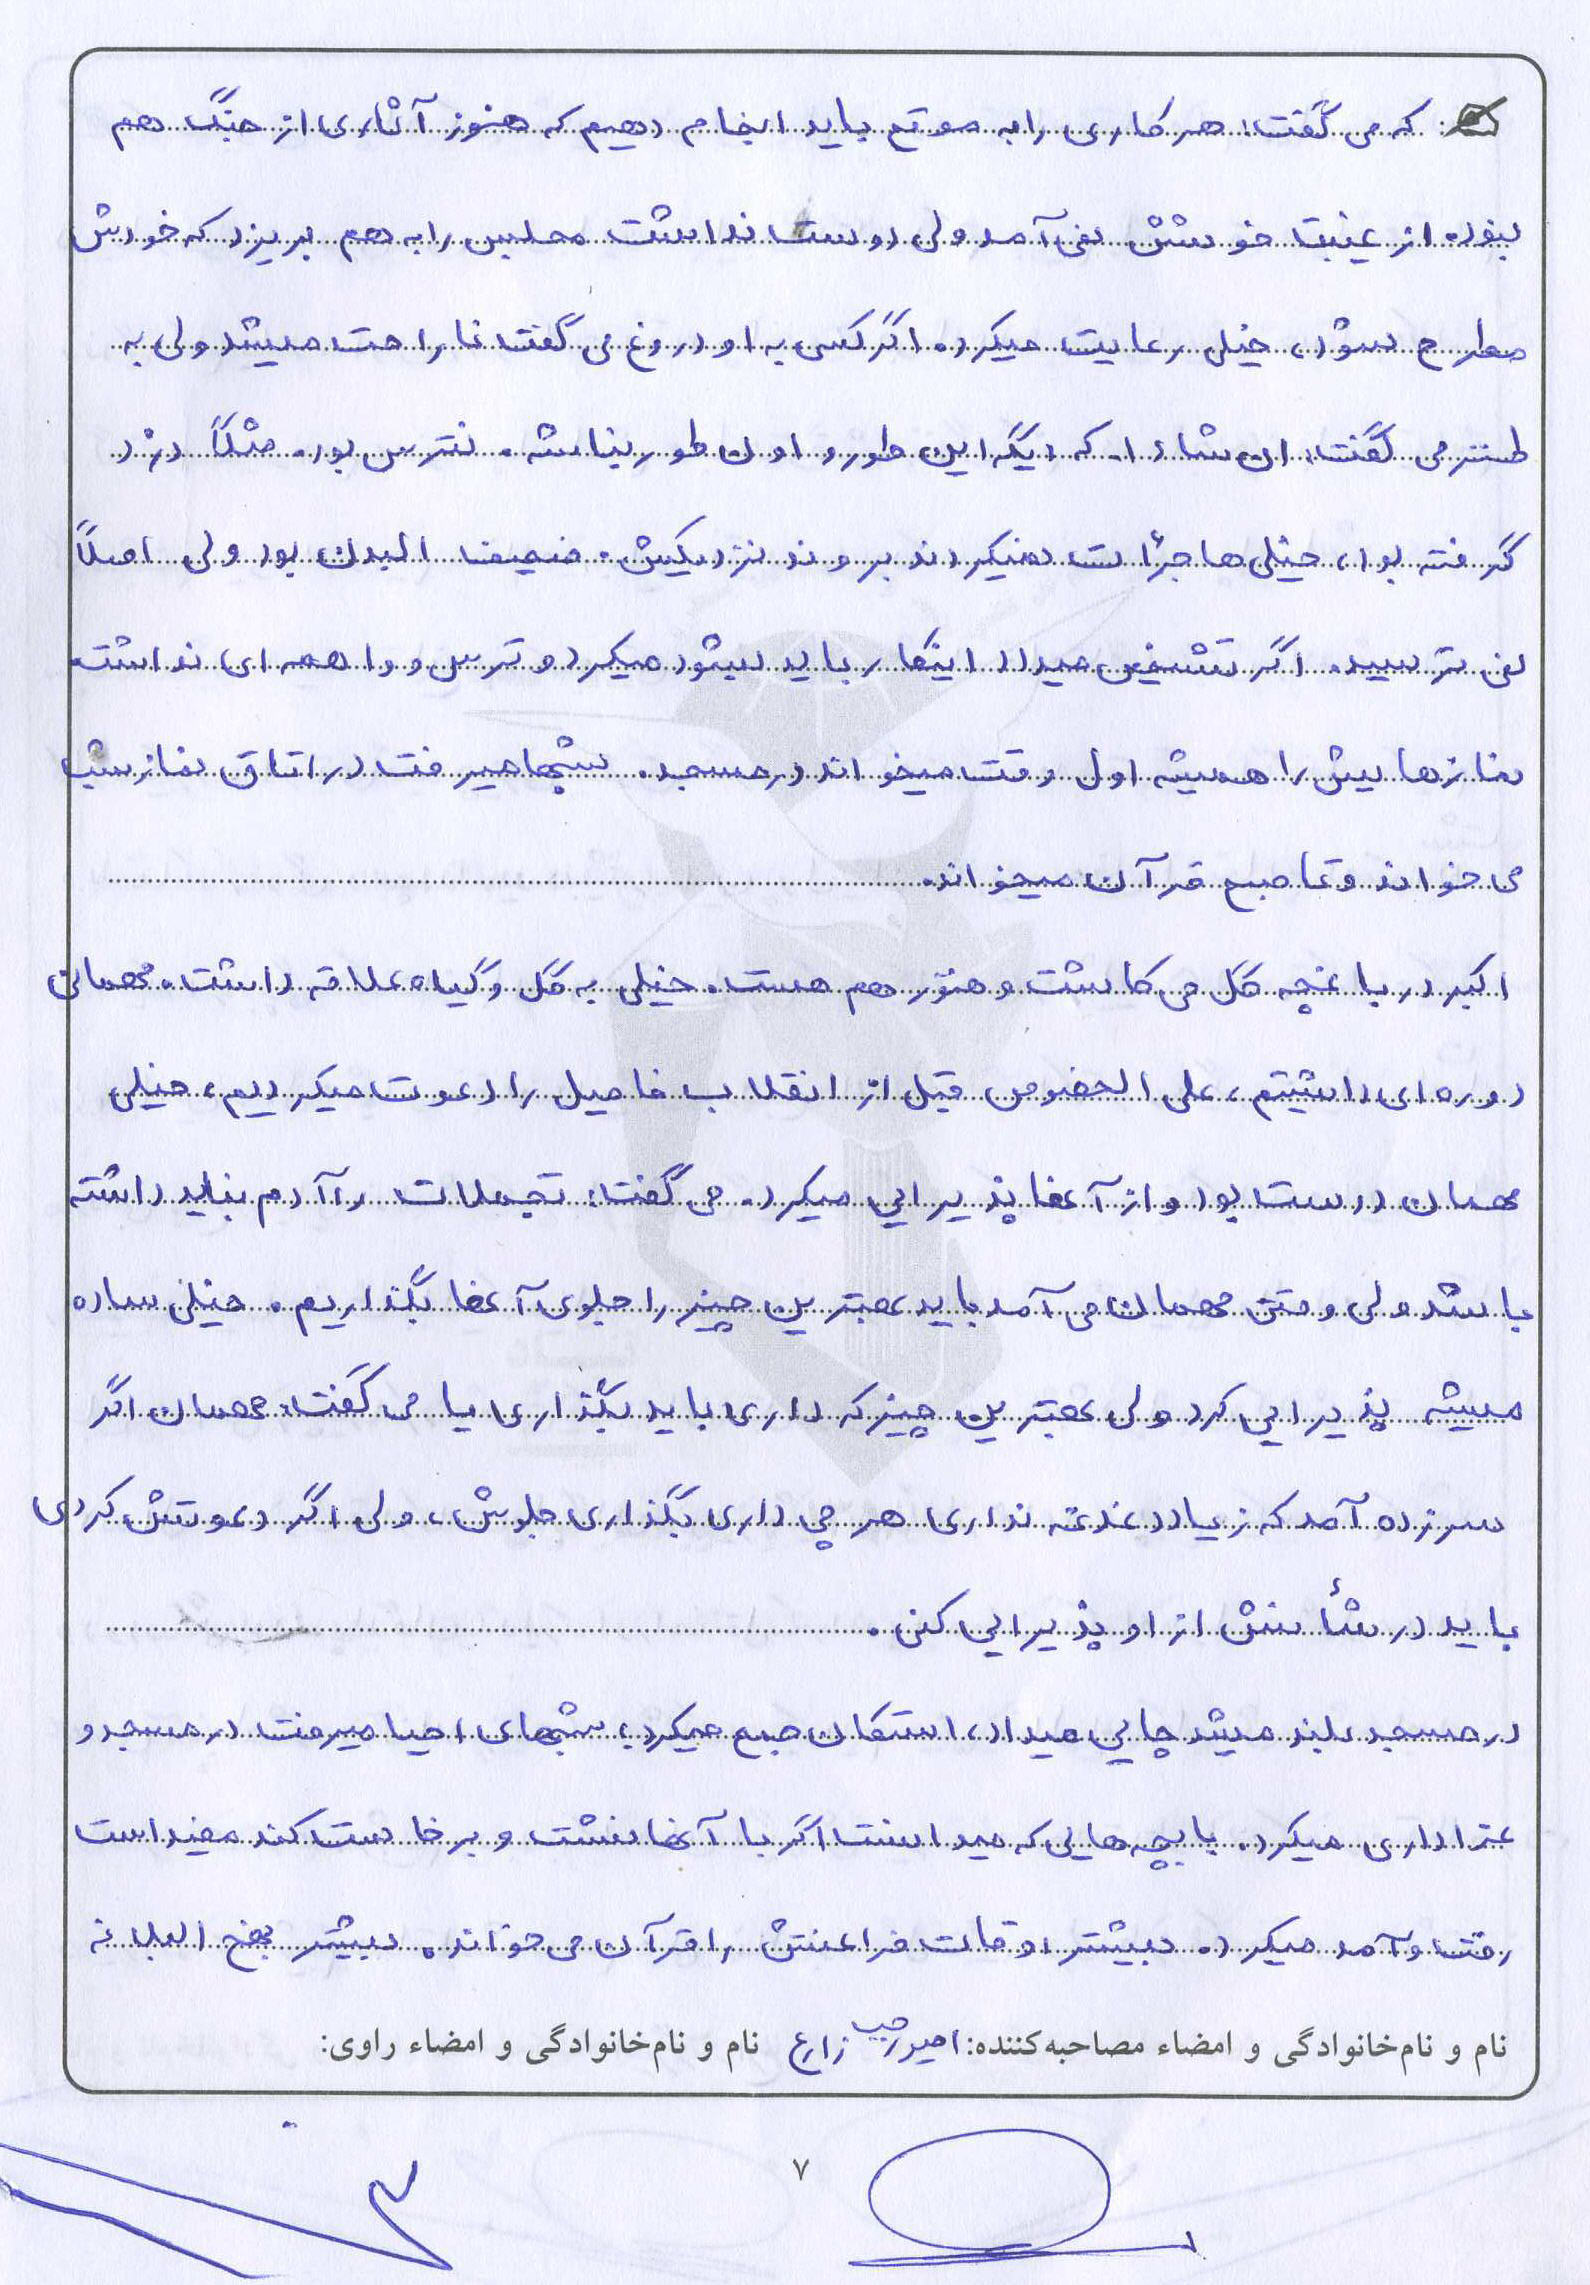 که می گفت: هر کاری را به موقع باید انجام دهیم که هنوز آثاری از جنگ هم
نبود. از غیبت خوشش نمی آمد ولی دوست نداشت مجلس را به هم بریزد که خودش
مطرح بشود، خیلی رعایت میکرد. اگر کسی به او دروغ می گفت ناراحت میشد ولی به
طنز می گفت: ان شاءا.. که دیگه این طور و اون طور نباشه. نترس بود. مثلاً دزد
گرفته بود، خیلی ها جرأت نمیکردند بروند نزدیکش. ضعیف البدن بود ولی اصلاً
نمی ترسید. اگر تشخیص میداد اینکار باید بشود میکرد و ترس و واهمه ای نداشت.
نمازهایش را همیشه اول وقت میخواند در مسجد. شبها میرفت در اتاق نماز شب
می خواند و تا صبح قرآن میخواند.
اکبر در باغچه گل می کاشت و هنوز هم هست. خیلی به گل و گیاه علاقه داشت. مهمانی
دوره ای داشتیم، علی الخصوص قبل از انقلاب فامیل را دعوت میکردیم، خیلی
مهمان دوست بود و از آنها پذیرایی میکرد. می گفت: تجملات را آدم نباید داشته
باشد ولی وقتی مهمان می آمد باید بهترین چیز را جلوی آنها بگذاریم. خیلی ساده
میشه پذیرایی کرد ولی بهترین چیز که داری باید بگذاری یا می گفت: مهمان اگر
سرزده آمد که زیاد دغدغه نداری هر چی داری بگذاری جلوش، ولی اگر دعوتش کردی
باید در شأنش از او پذیرایی کنی.
در مسجد بلند میشد چایی میداد، استکان جمع میکرد، شبهای احیا میرفت در مسجد و
عزاداری میکرد. با بچه هایی که میدانست اگر با آنها نشست و برخاست کند مفید است
رفت و آمد میکرد. بیشتر اوقات فراغتش را قرآن می خواند. بیشتر نهج البلاغه
نام و نام‌خانوادگی و امضاء مصاحبه‌کننده: امیر رجب زارع نام و نام‌خانوادگی و امضاء راوی:
۷